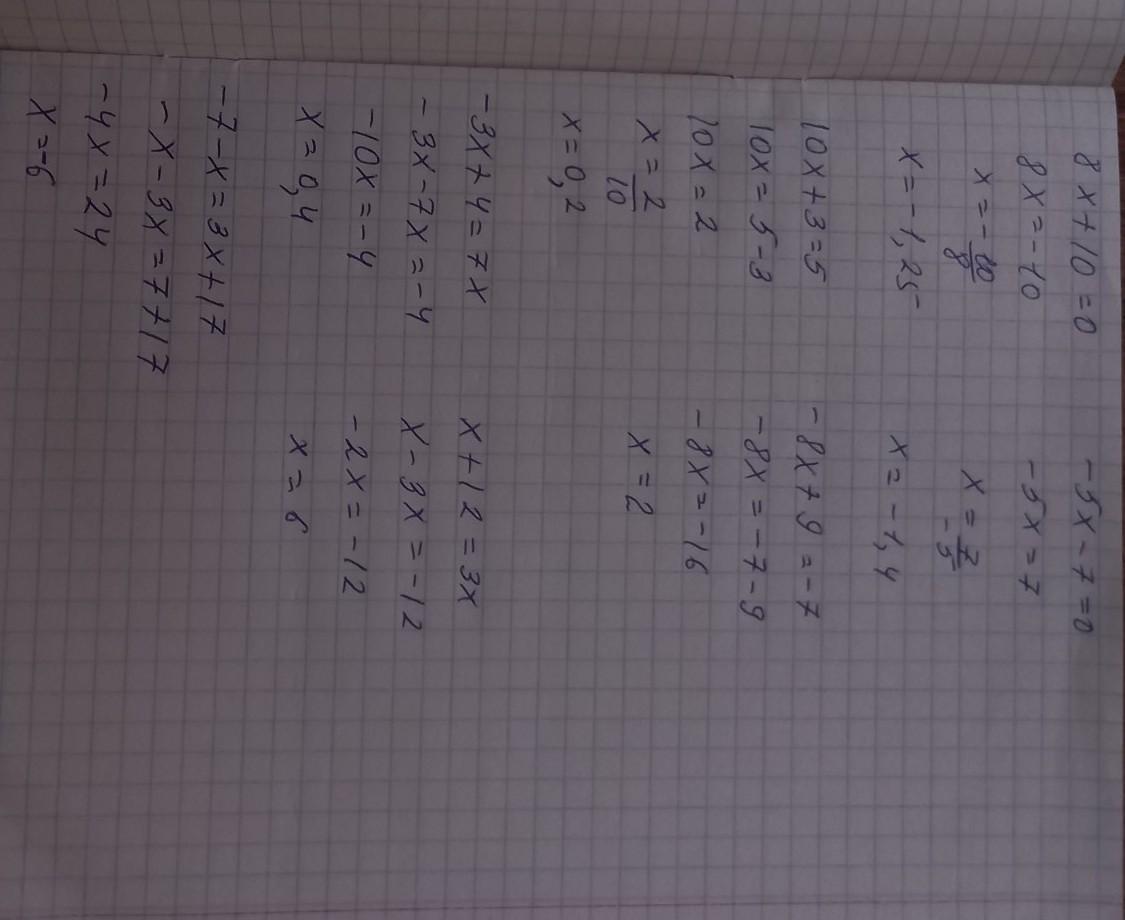 8x+10=0
8x=-10
x=-10/8
x=-1,25
-5x-7=0
-5x=7
x=7/-5
x=-1,4
10x+3=5
10x=5-3
10x=2
x=2/10
x=0,2
-8x+9=-7
-8x=-7-9
-8x=-16
x=2
-3x+4=7x
-3x-7x=-4
-10x=-4
x=0,4
x+12=3x
x-3x=-12
-2x=-12
x=6
-7-x=3x+17
-x-3x=7+17
-4x=24
x=-6